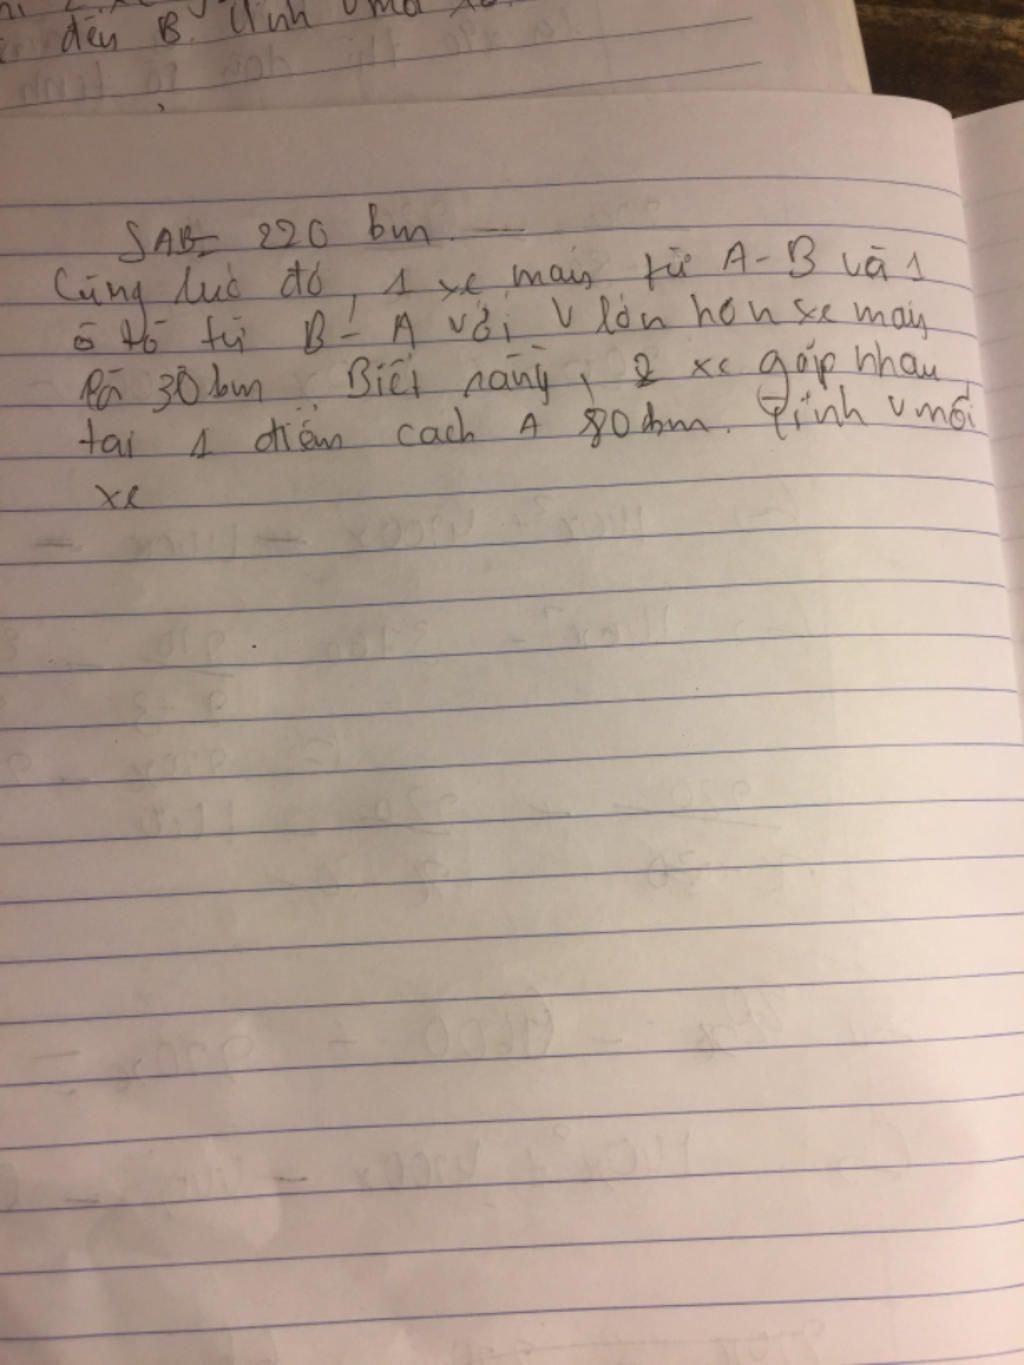 đến B. tính v mỗi
SAB= 220 km
Cùng lúc đó, 1 xe máy từ A-B và 1
ô tô từ B-A với v lớn hơn xe máy
là 30km. Biết rằng, 2 xe gặp nhau
tại 1 điểm cách A 80km. Tính v mỗi
xe